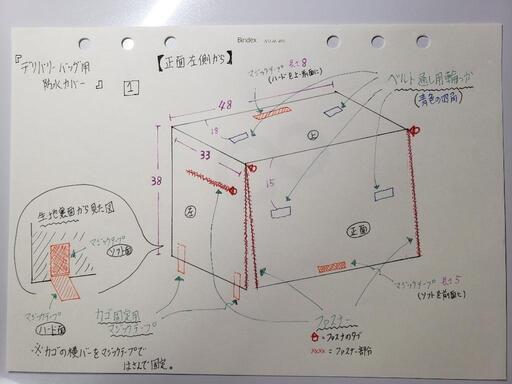 Bindex
『デリバリーバッグ用
防水カバー』
1
【正面左側から】
マジックテープ 長さ8
(ハードを上・前面に)
ベルト通し用輪っか
(青色の四角)
48
18
33
38
15
上
左
正面
生地裏面から見た図
マジックテープ
ソフト面
マジックテープ
ハード面
カゴ固定用
マジックテープ
※カゴの横バーをマジックテープで
はさんで固定。
マジックテープ 長さ5
(ソフトを前面に)
ファスナー
=ファスナのタブ
××××=ファスナー部分